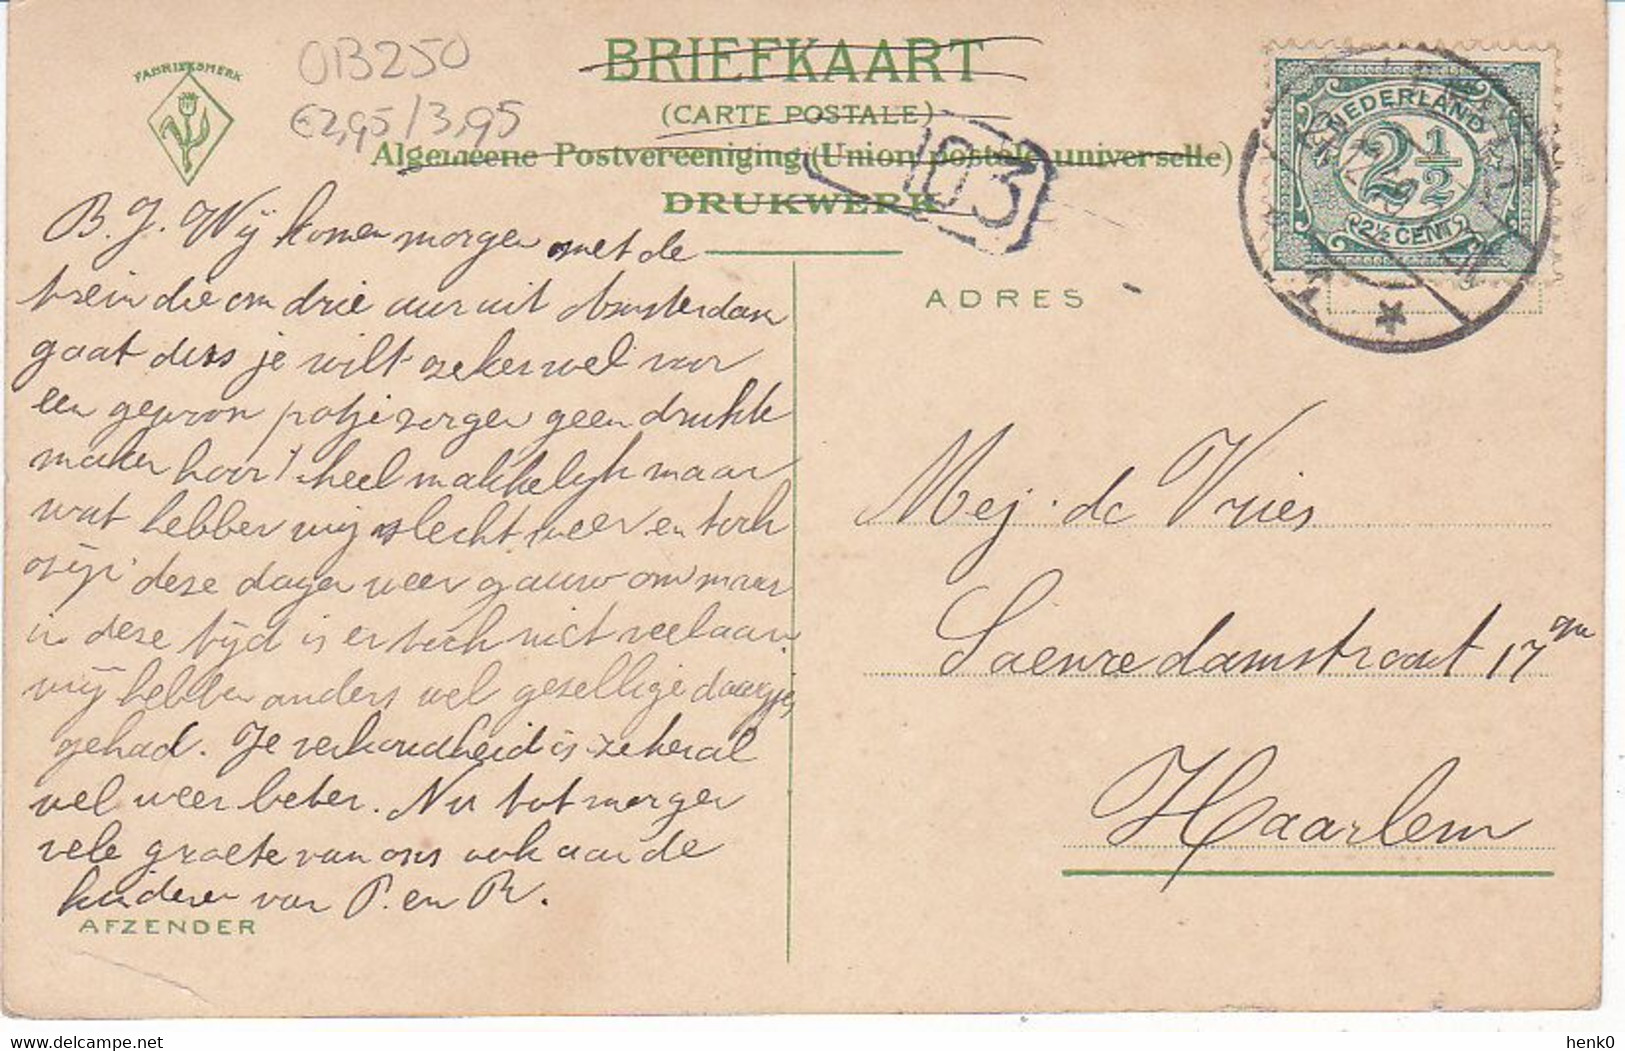 FABRIEKSMERK
OB250
€2,95/3,95
BRIEFKAART
(CARTE POSTALE)
Algemeene Postvereeniging (Union postale universelle)
DRUKWERK
03
NEDERLAND
2½
2½ CENT
ADRES
B. J. Wij komen morgen met de
trein die om drie uur uit Amsterdam
gaat dus je wilt zeker wel voor
een gewoon potje zorgen geen drukte
maken hoor! heel makkelijk maar
wat hebben wij slecht weer en toch
zijn deze dagen weer gauw om maar
in deze tijd is er toch niet veel aan.
wij hebben anders wel gezellige daagjes
gehad. Je verkoudheid is zeker al
wel weer beter. Nu tot morgen
vele groete van ons ook aan de
kinderen van P. en R.
AFZENDER
Mej. de Vries
Saenredamstraat 17
Haarlem
henk0